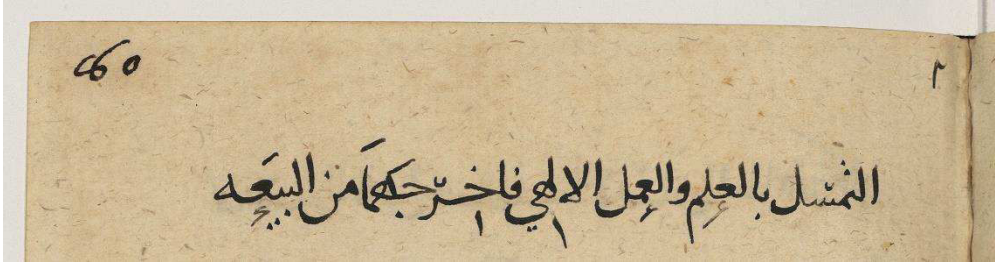 بالعلم والعمل الالهي فاخرجهما من البيعه